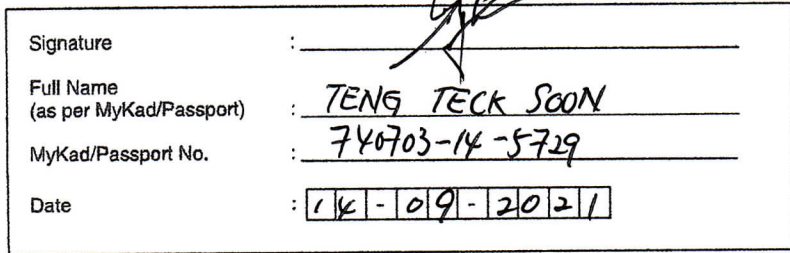 Signature :
Full Name
(as per MyKad/Passport) : TENG TECK SOON
MyKad/Passport No. : 740703-14-5729
Date : 14-09-2021